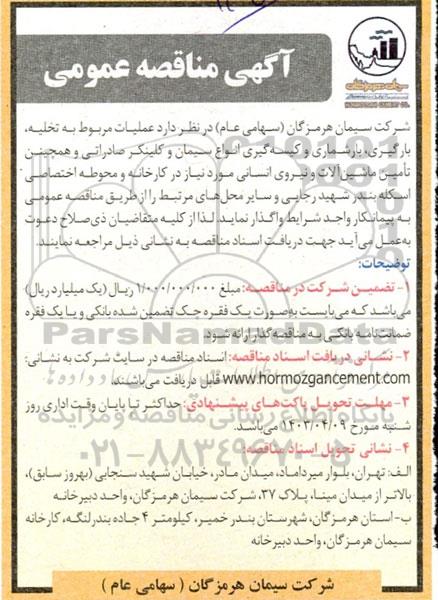 آگهی مناقصه عمومی
شرکت سیمان هرمزگان (سهامی عام) در نظر دارد عملیات مربوط به تخلیه،
بارگیری، بارشماری و کیسه گیری انواع سیمان و کلینکر صادراتی و همچنین
تأمین ماشین‌آلات و نیروی انسانی مورد نیاز در کارخانه و محوطه اختصاصی
اسکله بندر شهید رجایی و سایر محل‌های مرتبط را از طریق مناقصه عمومی
به پیمانکار واجد شرایط واگذار نماید. لذا از کلیه متقاضیان ذی‌صلاح دعوت
به‌عمل می‌آید جهت دریافت اسناد مناقصه به نشانی ذیل مراجعه نمایند.
توضیحات:
۱- تضمین شرکت در مناقصه: مبلغ ۱/۰۰۰/۰۰۰/۰۰۰ ریال (یک میلیارد ریال)
می‌باشد که می‌بایست به‌صورت یک فقره چک تضمین شده بانکی و یا یک فقره
ضمانت‌نامه بانکی به مناقصه‌گذار ارائه شود.
۲- نشانی دریافت اسناد مناقصه: اسناد مناقصه در سایت شرکت به نشانی:
www.hormozgancement.com قابل دریافت می‌باشند
۳- مهلت تحویل پاکت‌های پیشنهادی: حداکثر تا پایان وقت اداری روز
شنبه مورخ ۱۴۰۳/۰۴/۰۹ می‌باشد.
۴- نشانی تحویل اسناد مناقصه:
الف: تهران، بلوار میرداماد، میدان مادر، خیابان شهید سنجابی (بهروز سابق)،
بالاتر از میدان مینا، پلاک ۳۷، شرکت سیمان هرمزگان، واحد دبیرخانه
ب- استان هرمزگان، شهرستان بندر خمیر، کیلومتر ۴ جاده بندرلنگه، کارخانه
سیمان هرمزگان، واحد دبیرخانه
شرکت سیمان هرمزگان ( سهامی عام )
ParsNamadData
پایگاه اطلاع رسانی مناقصه و مزایده
۰۲۱-۸۸۳۴۹۶۷۰-۵